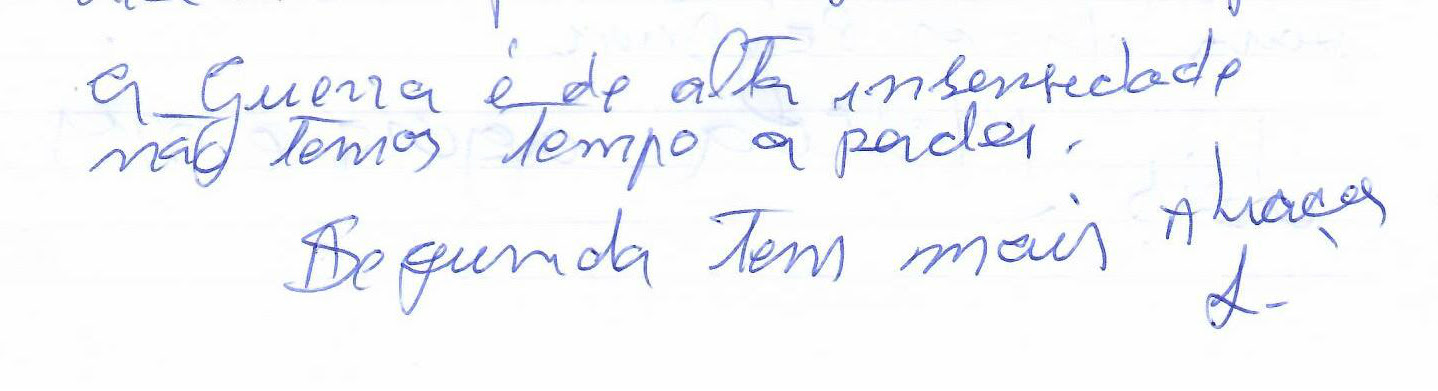 a Guerra é de alta intensidade
não temos tempo a perder.
Segunda tem mais Abraços
L-